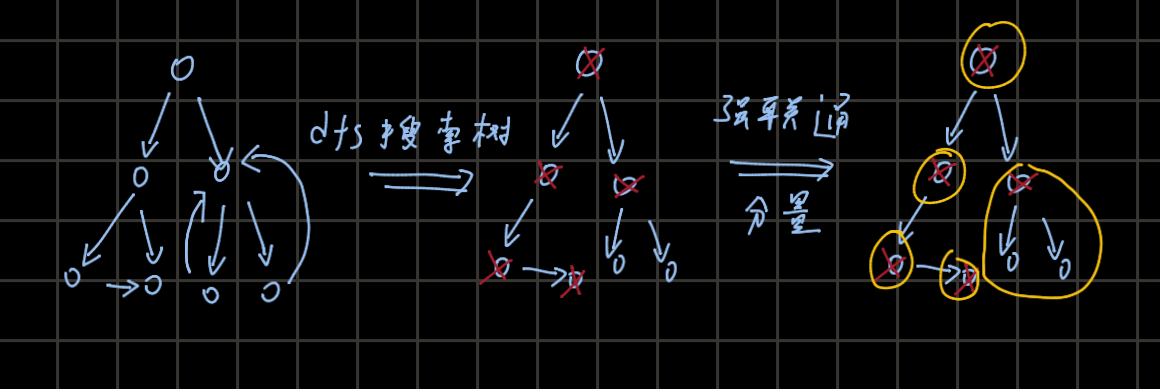 dfs搜索树
强联通
分量